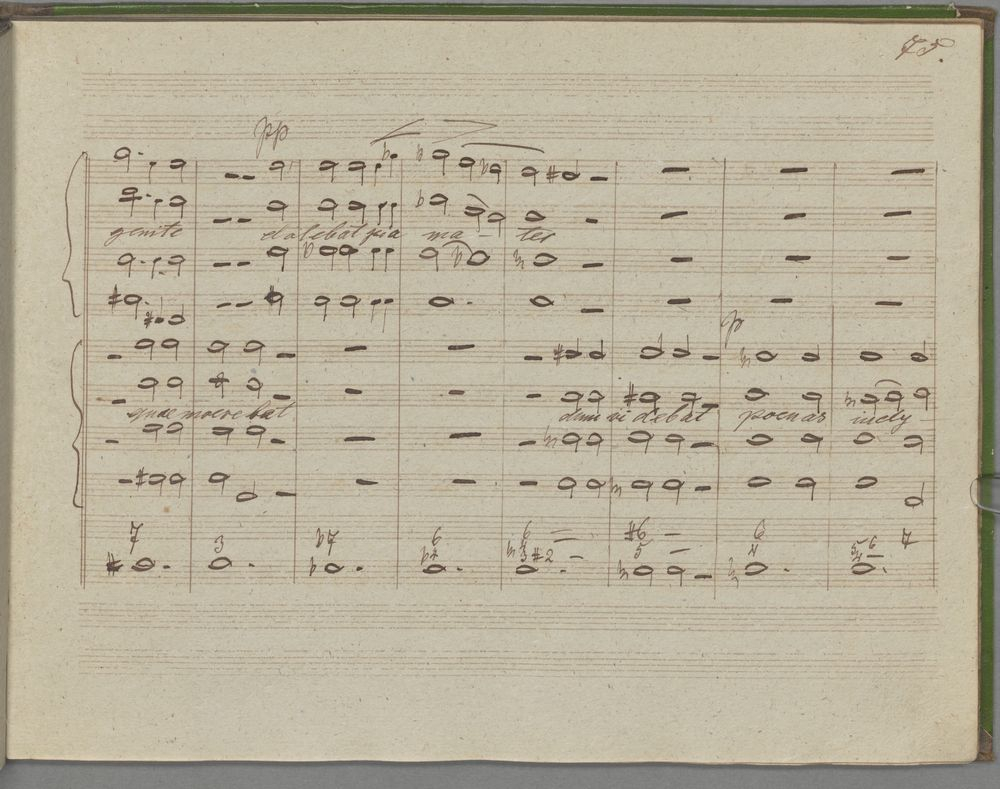 75.
pp
genite dolebat pia ma - ter
p
quae moerebat dum videbat poenas incly
7 3 b7 6 6 #6 6 6 7
4 4 5 4 5
3 #2 4